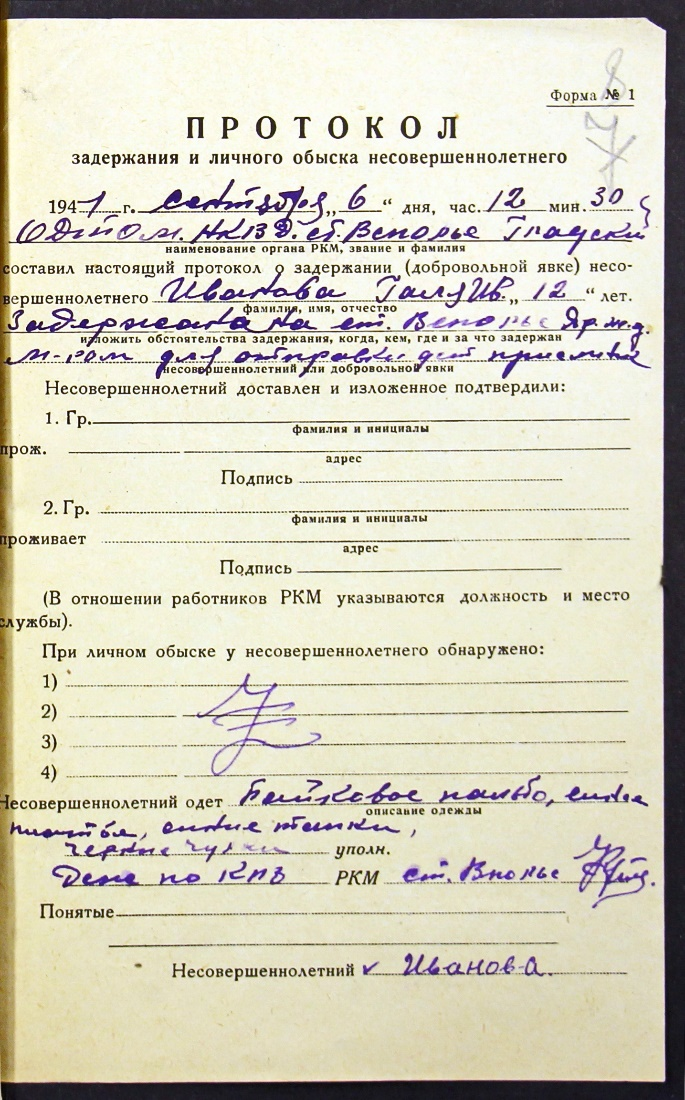 8
7
Форма № 1
ПРОТОКОЛ
задержания и личного обыска несовершеннолетнего
1941 г. сентября „ 6 “ дня, час. 12 мин. 30
НКВД ст. Всполье
наименование органа РКМ, звание и фамилия
составил настоящий протокол о задержании (добровольной явке) несо-
вершеннолетнего Иванова Галя Ив. „ 12 “ лет.
фамилия, имя, отчество
Задержана на ст. Всполье Яр. ж.д.
изложить обстоятельства задержания, когда, кем, где и за что задержан
для отправки дет приемник
несовершеннолетний или добровольной явки
Несовершеннолетний доставлен и изложенное подтвердили:
1. Гр.
фамилия и инициалы
прож.
адрес
Подпись
2. Гр.
фамилия и инициалы
проживает
адрес
Подпись
(В отношении работников РКМ указываются должность и место
службы).
При личном обыске у несовершеннолетнего обнаружено:
1)
2)
3)
4)
Несовершеннолетний одет Байковое пальто, синее
описание одежды
платье, синие тапки,
черные чулки уполн.
РКМ ст. Вполье
Понятые
Несовершеннолетний Иванова.